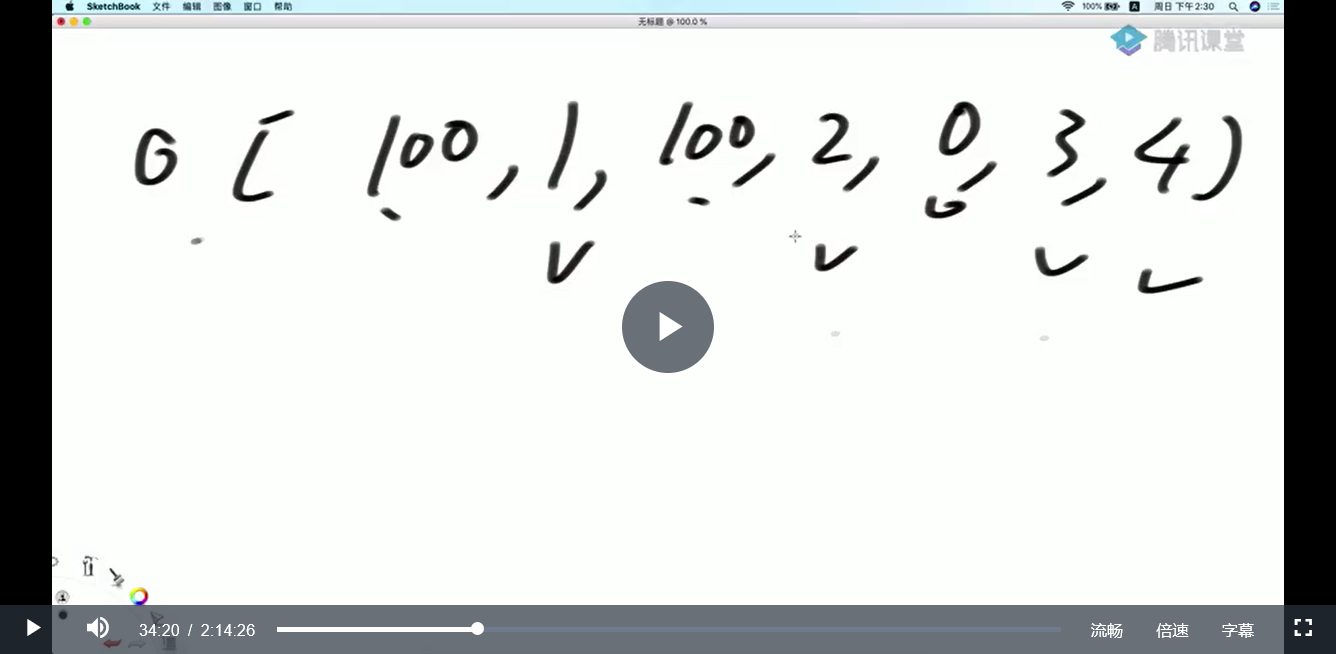 SketchBook 文件 编辑 图像 窗口 帮助 100% A 周日 下午2:30
无标题 @ 100.0 %
腾讯课堂
G [ 100, 1, 100, 2, 0, 3, 4 )
34:20 / 2:14:26 流畅 倍速 字幕